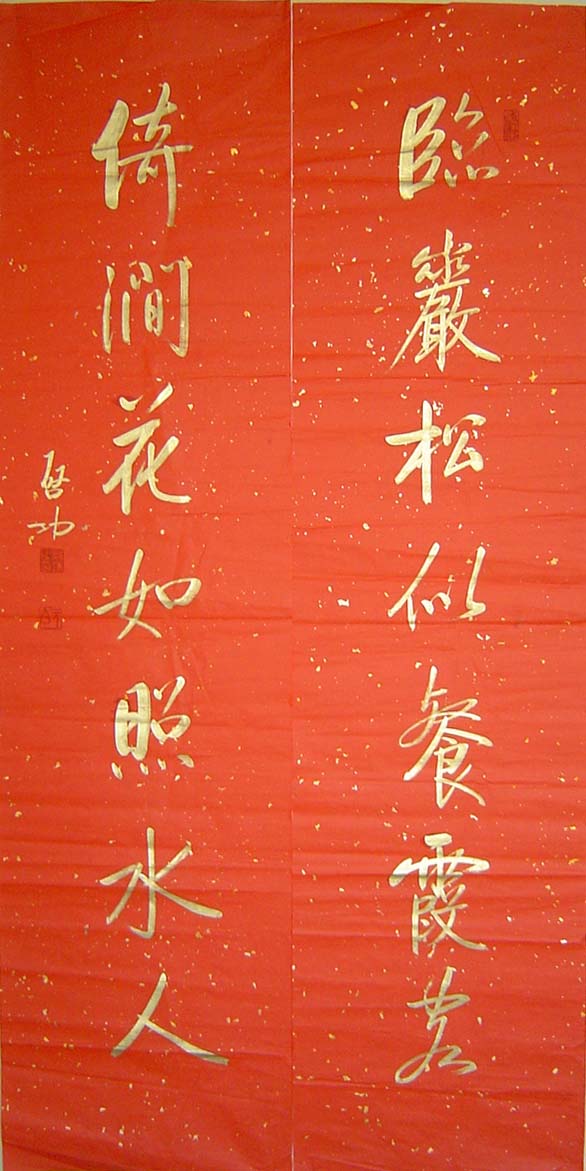 臨巖松似餐霞
倚澗花如照水人
啓功